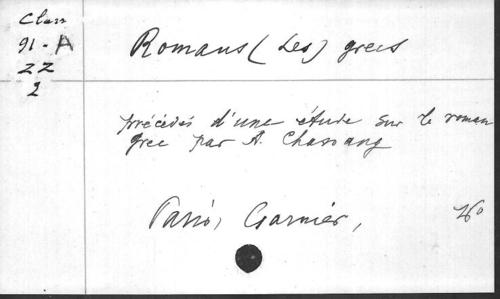 Class
91-A
ZZ
2
Romans (Les) grecs
précédés d'une étude sur le roman
grec par A. Chassang
Paris, Garnier,